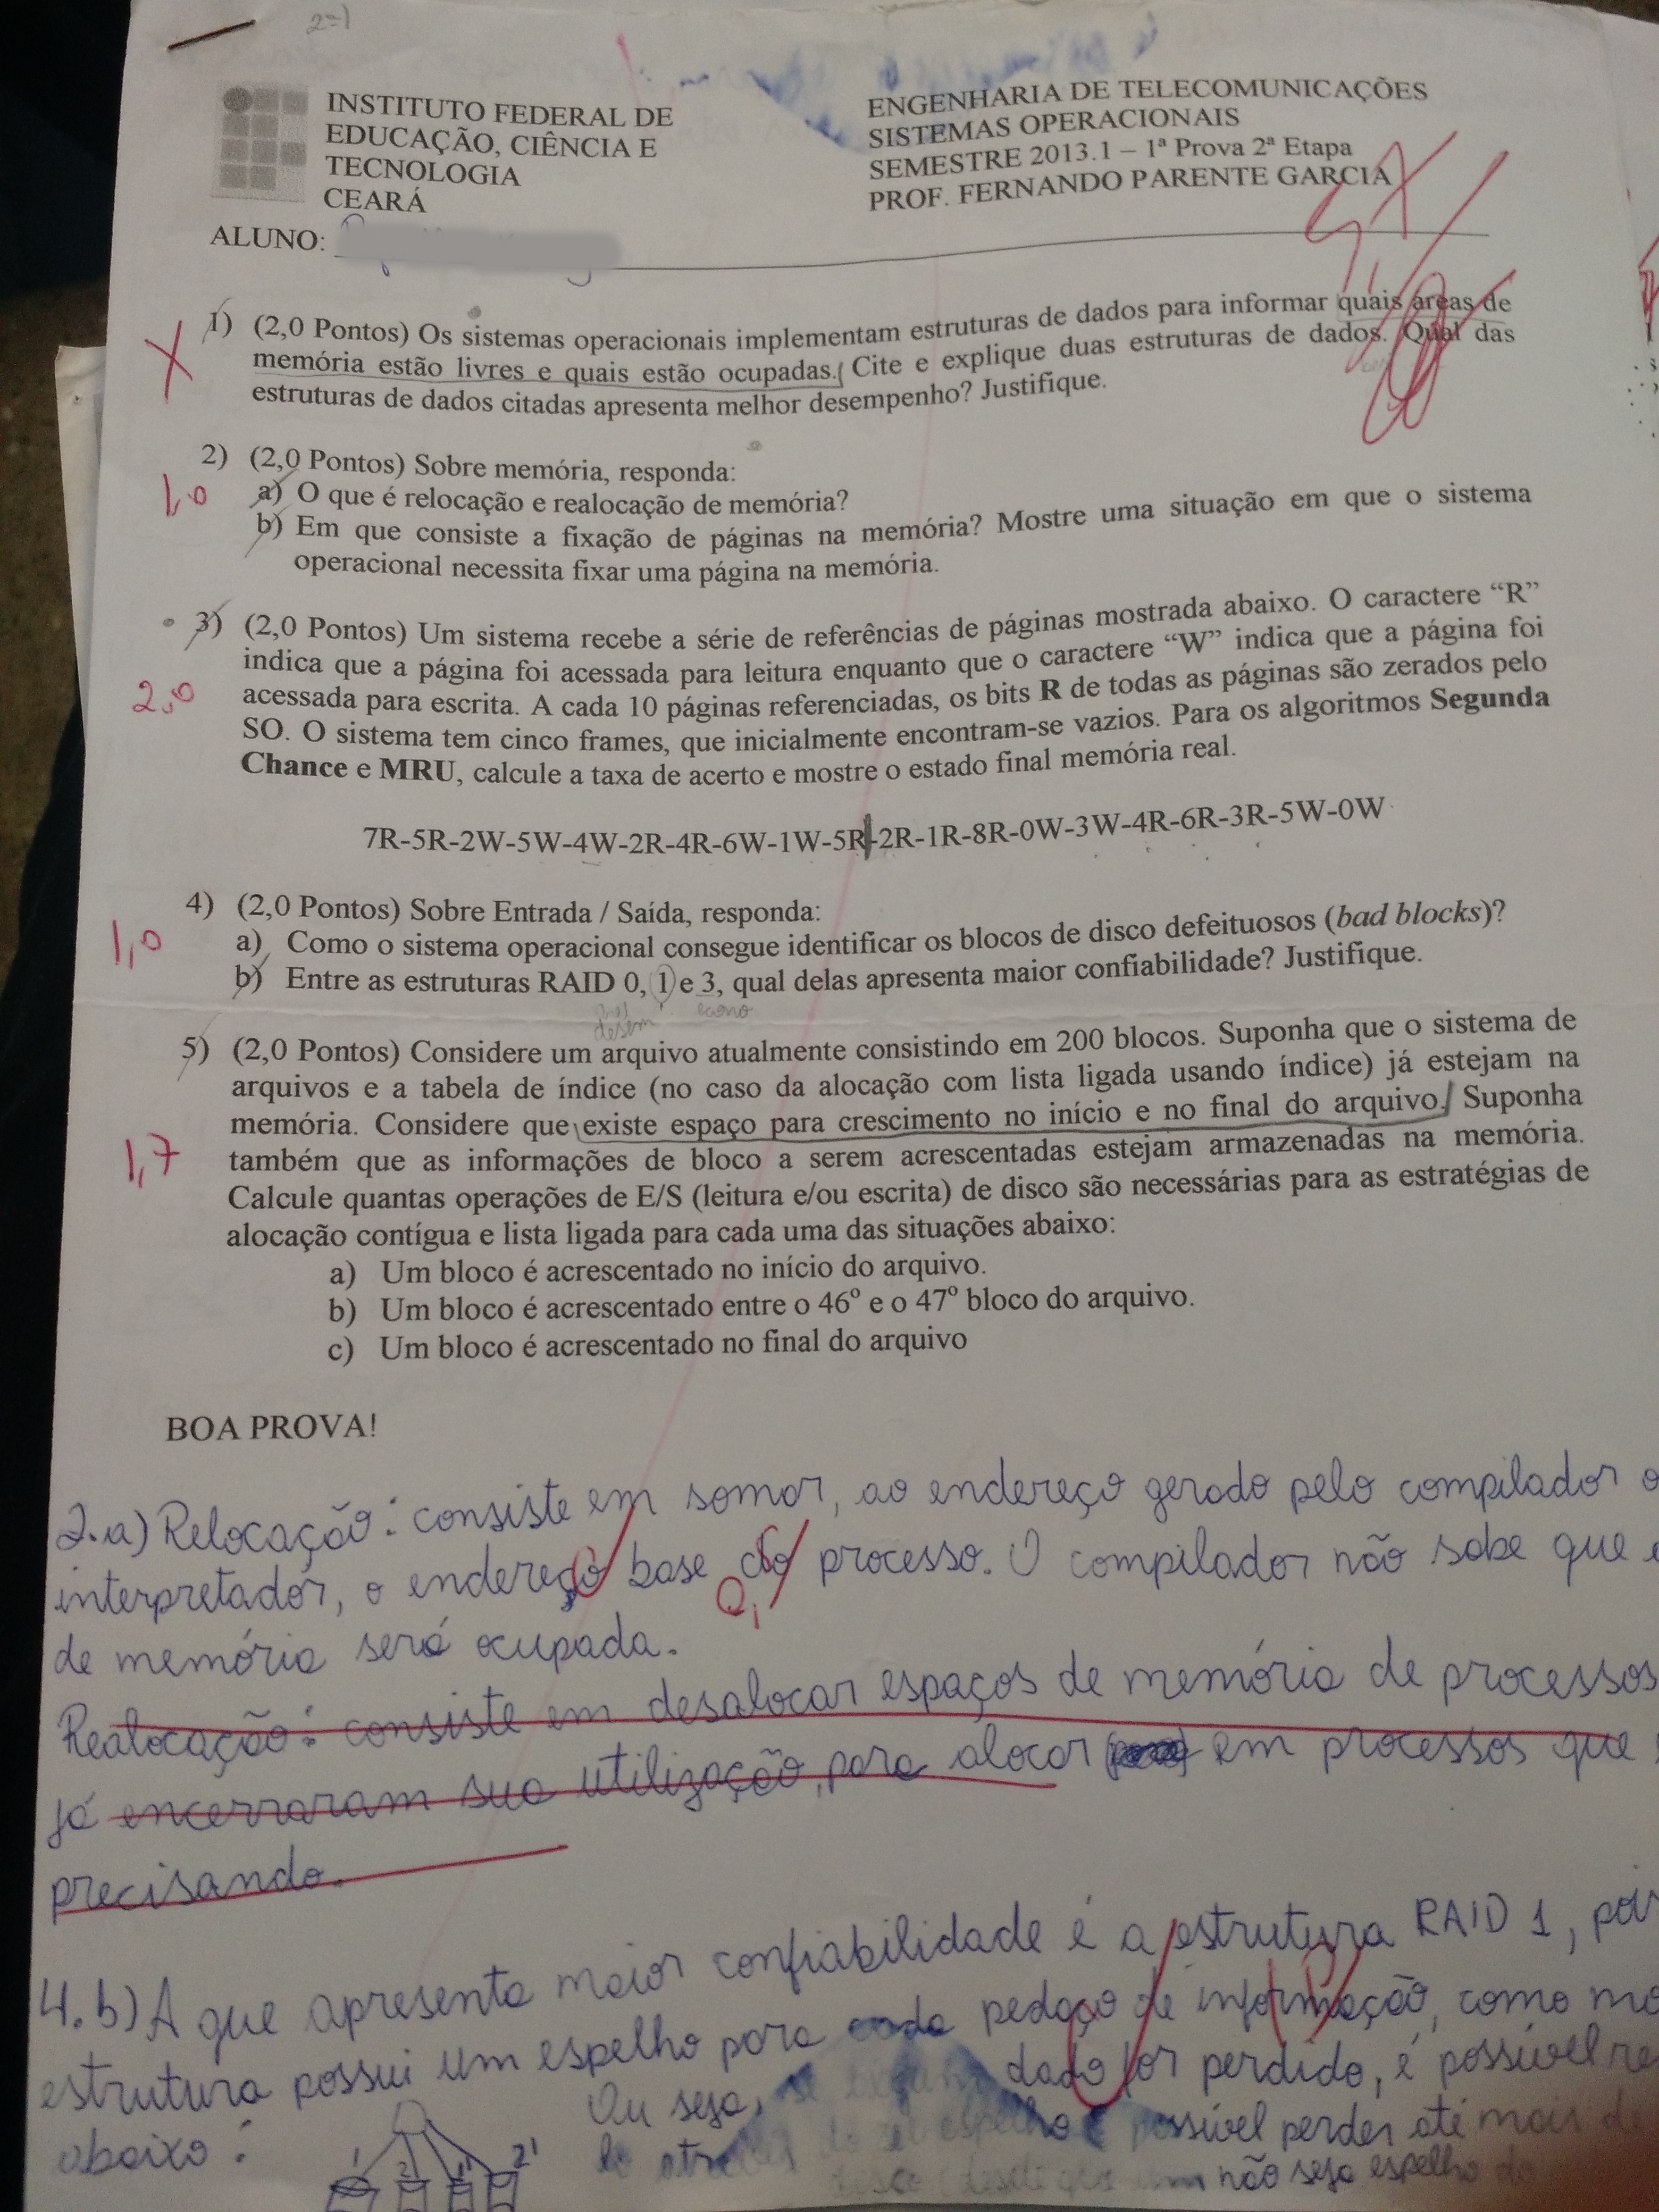 2=)
INSTITUTO FEDERAL DE
EDUCAÇÃO, CIÊNCIA E
TECNOLOGIA
CEARÁ
ENGENHARIA DE TELECOMUNICAÇÕES
SISTEMAS OPERACIONAIS
SEMESTRE 2013.1 – 1ª Prova 2ª Etapa
PROF. FERNANDO PARENTE GARCIA
ALUNO:
1) (2,0 Pontos) Os sistemas operacionais implementam estruturas de dados para informar quais áreas de
memória estão livres e quais estão ocupadas. Cite e explique duas estruturas de dados. Qual das
estruturas de dados citadas apresenta melhor desempenho? Justifique.
2) (2,0 Pontos) Sobre memória, responda:
1,0
a) O que é relocação e realocação de memória?
b) Em que consiste a fixação de páginas na memória? Mostre uma situação em que o sistema
operacional necessita fixar uma página na memória.
3) (2,0 Pontos) Um sistema recebe a série de referências de páginas mostrada abaixo. O caractere “R”
indica que a página foi acessada para leitura enquanto que o caractere “W” indica que a página foi
2,0
acessada para escrita. A cada 10 páginas referenciadas, os bits R de todas as páginas são zerados pelo
SO. O sistema tem cinco frames, que inicialmente encontram-se vazios. Para os algoritmos Segunda
Chance e MRU, calcule a taxa de acerto e mostre o estado final memória real.
7R-5R-2W-5W-4W-2R-4R-6W-1W-5R-2R-1R-8R-0W-3W-4R-6R-3R-5W-0W
4) (2,0 Pontos) Sobre Entrada / Saída, responda:
1,0
a) Como o sistema operacional consegue identificar os blocos de disco defeituosos (bad blocks)?
b) Entre as estruturas RAID 0, 1 e 3, qual delas apresenta maior confiabilidade? Justifique.
desem
5) (2,0 Pontos) Considere um arquivo atualmente consistindo em 200 blocos. Suponha que o sistema de
arquivos e a tabela de índice (no caso da alocação com lista ligada usando índice) já estejam na
memória. Considere que existe espaço para crescimento no início e no final do arquivo. Suponha
1,7
também que as informações de bloco a serem acrescentadas estejam armazenadas na memória.
Calcule quantas operações de E/S (leitura e/ou escrita) de disco são necessárias para as estratégias de
alocação contígua e lista ligada para cada uma das situações abaixo:
a) Um bloco é acrescentado no início do arquivo.
b) Um bloco é acrescentado entre o 46º e o 47º bloco do arquivo.
c) Um bloco é acrescentado no final do arquivo
BOA PROVA!
2.a) Relocação: consiste em somar, ao endereço gerado pelo compilador o
interpretador, o endereço base do processo. O compilador não sabe que
de memória será ocupada.
Realocação: consiste em desalocar espaços de memória de processos
já encerraram sua utilização, para alocar em processos que
precisando.
4.b) A que apresenta maior confiabilidade é a estrutura RAID 1, poi
estrutura possui um espelho para cada pedaço de informação, como mo
abaixo:
Ou seja, se dado for perdido, é possível re
do espelho é possível perder até mais de
disco desde que um não seja espelho do
1 2 1' 2'